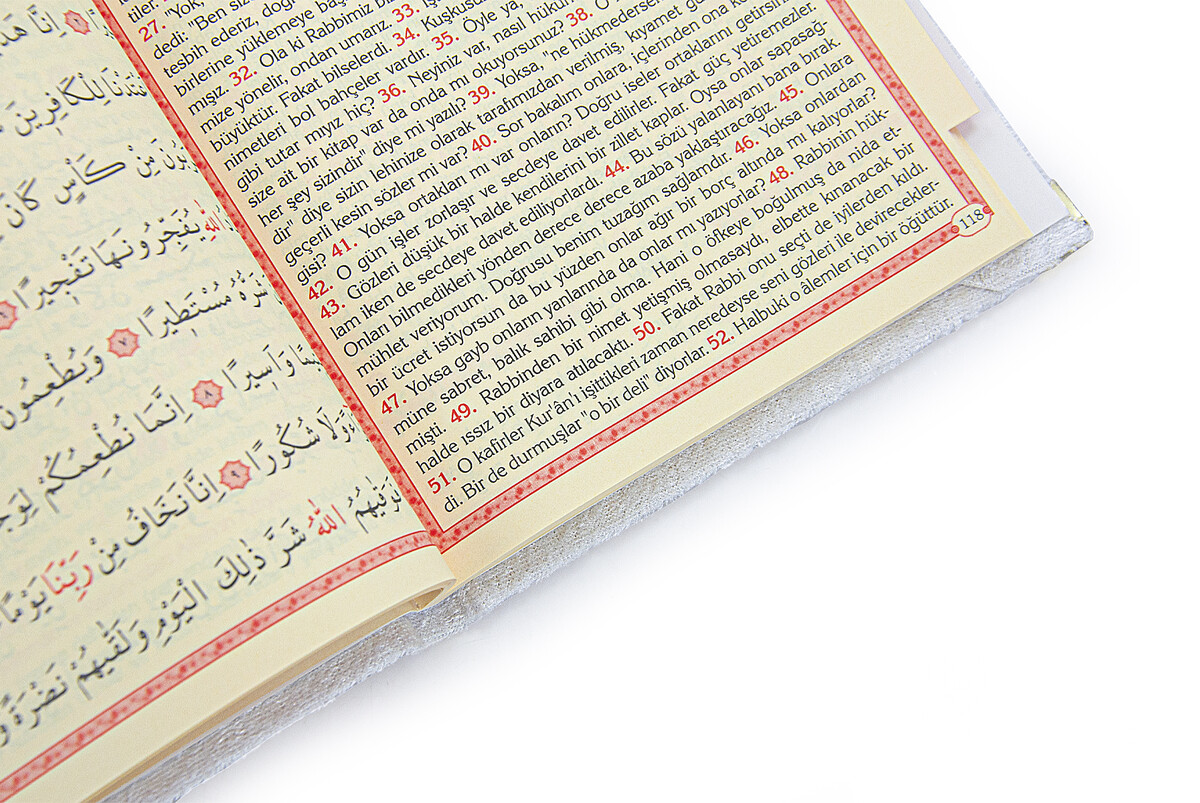 إِنَّا هَدَ
لِلْكَافِرِينَ
مِنْ كَأْسٍ كَانَ
اللّٰهِ يُفَجِّرُونَهَا تَفْجِيرًا ٦
مُسْتَطِيرًا ٧ وَيُطْعِمُونَ
وَأَسِيرًا ٨ إِنَّمَا نُطْعِمُكُمْ لِوَجْ
وَلَا شُكُورًا ٩ إِنَّا نَخَافُ مِنْ رَبِّنَا يَوْمًا
اللّٰهُ شَرَّ ذٰلِكَ الْيَوْمِ وَلَقّٰيهُمْ نَضْرَةً وَ
tiler.
27. "Yok,
dedi: "Ben siz
tesbih ederiz, doğ
birlerine yüklemeye baş
mışız. 32. Ola ki Rabbimiz bi
mize yönelir, ondan umarız. 33. İş
büyüktür. Fakat bilselerdi. 34. Kuşkusu
nimetleri bol bahçeler vardır. 35. Öyle ya,
gibi tutar mıyız hiç? 36. Neyiniz var, nasıl hükü
size ait bir kitap var da onda mı okuyorsunuz? 38. O
her şey sizindir" diye mi yazılı? 39. Yoksa, "ne hükmederse
dir" diye sizin lehinize olarak tarafımızdan verilmiş, kıyamet gü
geçerli kesin sözler mi var? 40. Sor bakalım onlara, içlerinden ona ke
gisi? 41. Yoksa ortakları mı var onların? Doğru iseler ortaklarını getirsin
42. O gün işler zorlaşır ve secdeye davet edilirler. Fakat güç yetiremezler.
43. Gözleri düşük bir halde kendilerini bir zillet kaplar. Oysa onlar sapasağ-
lam iken de secdeye davet ediliyorlardı. 44. Bu sözü yalanlayanı bana bırak.
Onları bilmedikleri yönden derece derece azaba yaklaştıracağız 45. Onlara
mühlet veriyorum. Doğrusu benim tuzağım sağlamdır. 46. Yoksa onlardan
bir ücret istiyorsun da bu yüzden onlar ağır bir borç altında mı kalıyorlar?
47. Yoksa gayb onların yanlarında da onlar mı yazıyorlar? 48. Rabbinin hük-
müne sabret, balık sahibi gibi olma. Hani o öfkeye boğulmuş da nida et-
mişti. 49. Rabbinden bir nimet yetişmiş olmasaydı, elbette kınanacak bir
halde ıssız bir diyara atılacaktı. 50. Fakat Rabbi onu seçti de iyilerden kıldı.
51. O kafirler Kur'ân'ı işittikleri zaman neredeyse seni gözleri ile devirecekler-
di. Bir de durmuşlar "o bir deli" diyorlar. 52. Halbuki o âlemler için bir öğüttür.
118